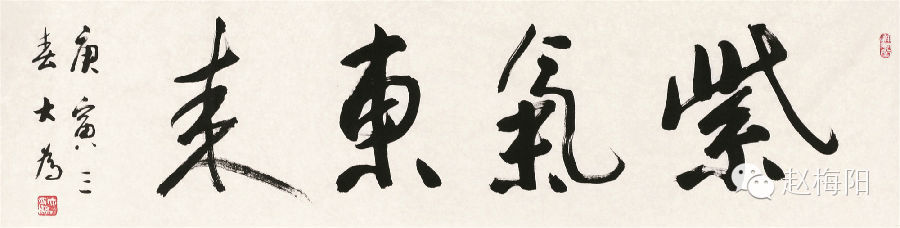 紫氣東来
庚寅三
春大为
赵梅阳